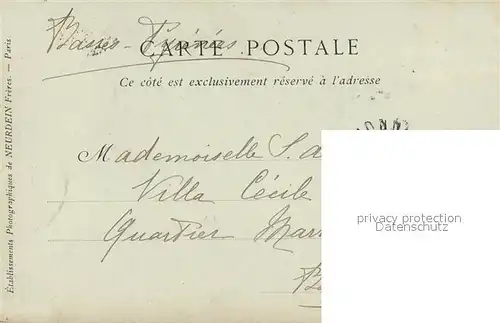 Basses-Pyrénées
CARTE POSTALE
Ce côté est exclusivement réservé à l'adresse
Mademoiselle S. a
Villa Cécile
Quartier Mar
B
privacy protection
Datenschutz
Établissements Photographiques de NEURDEIN Frères. — Paris